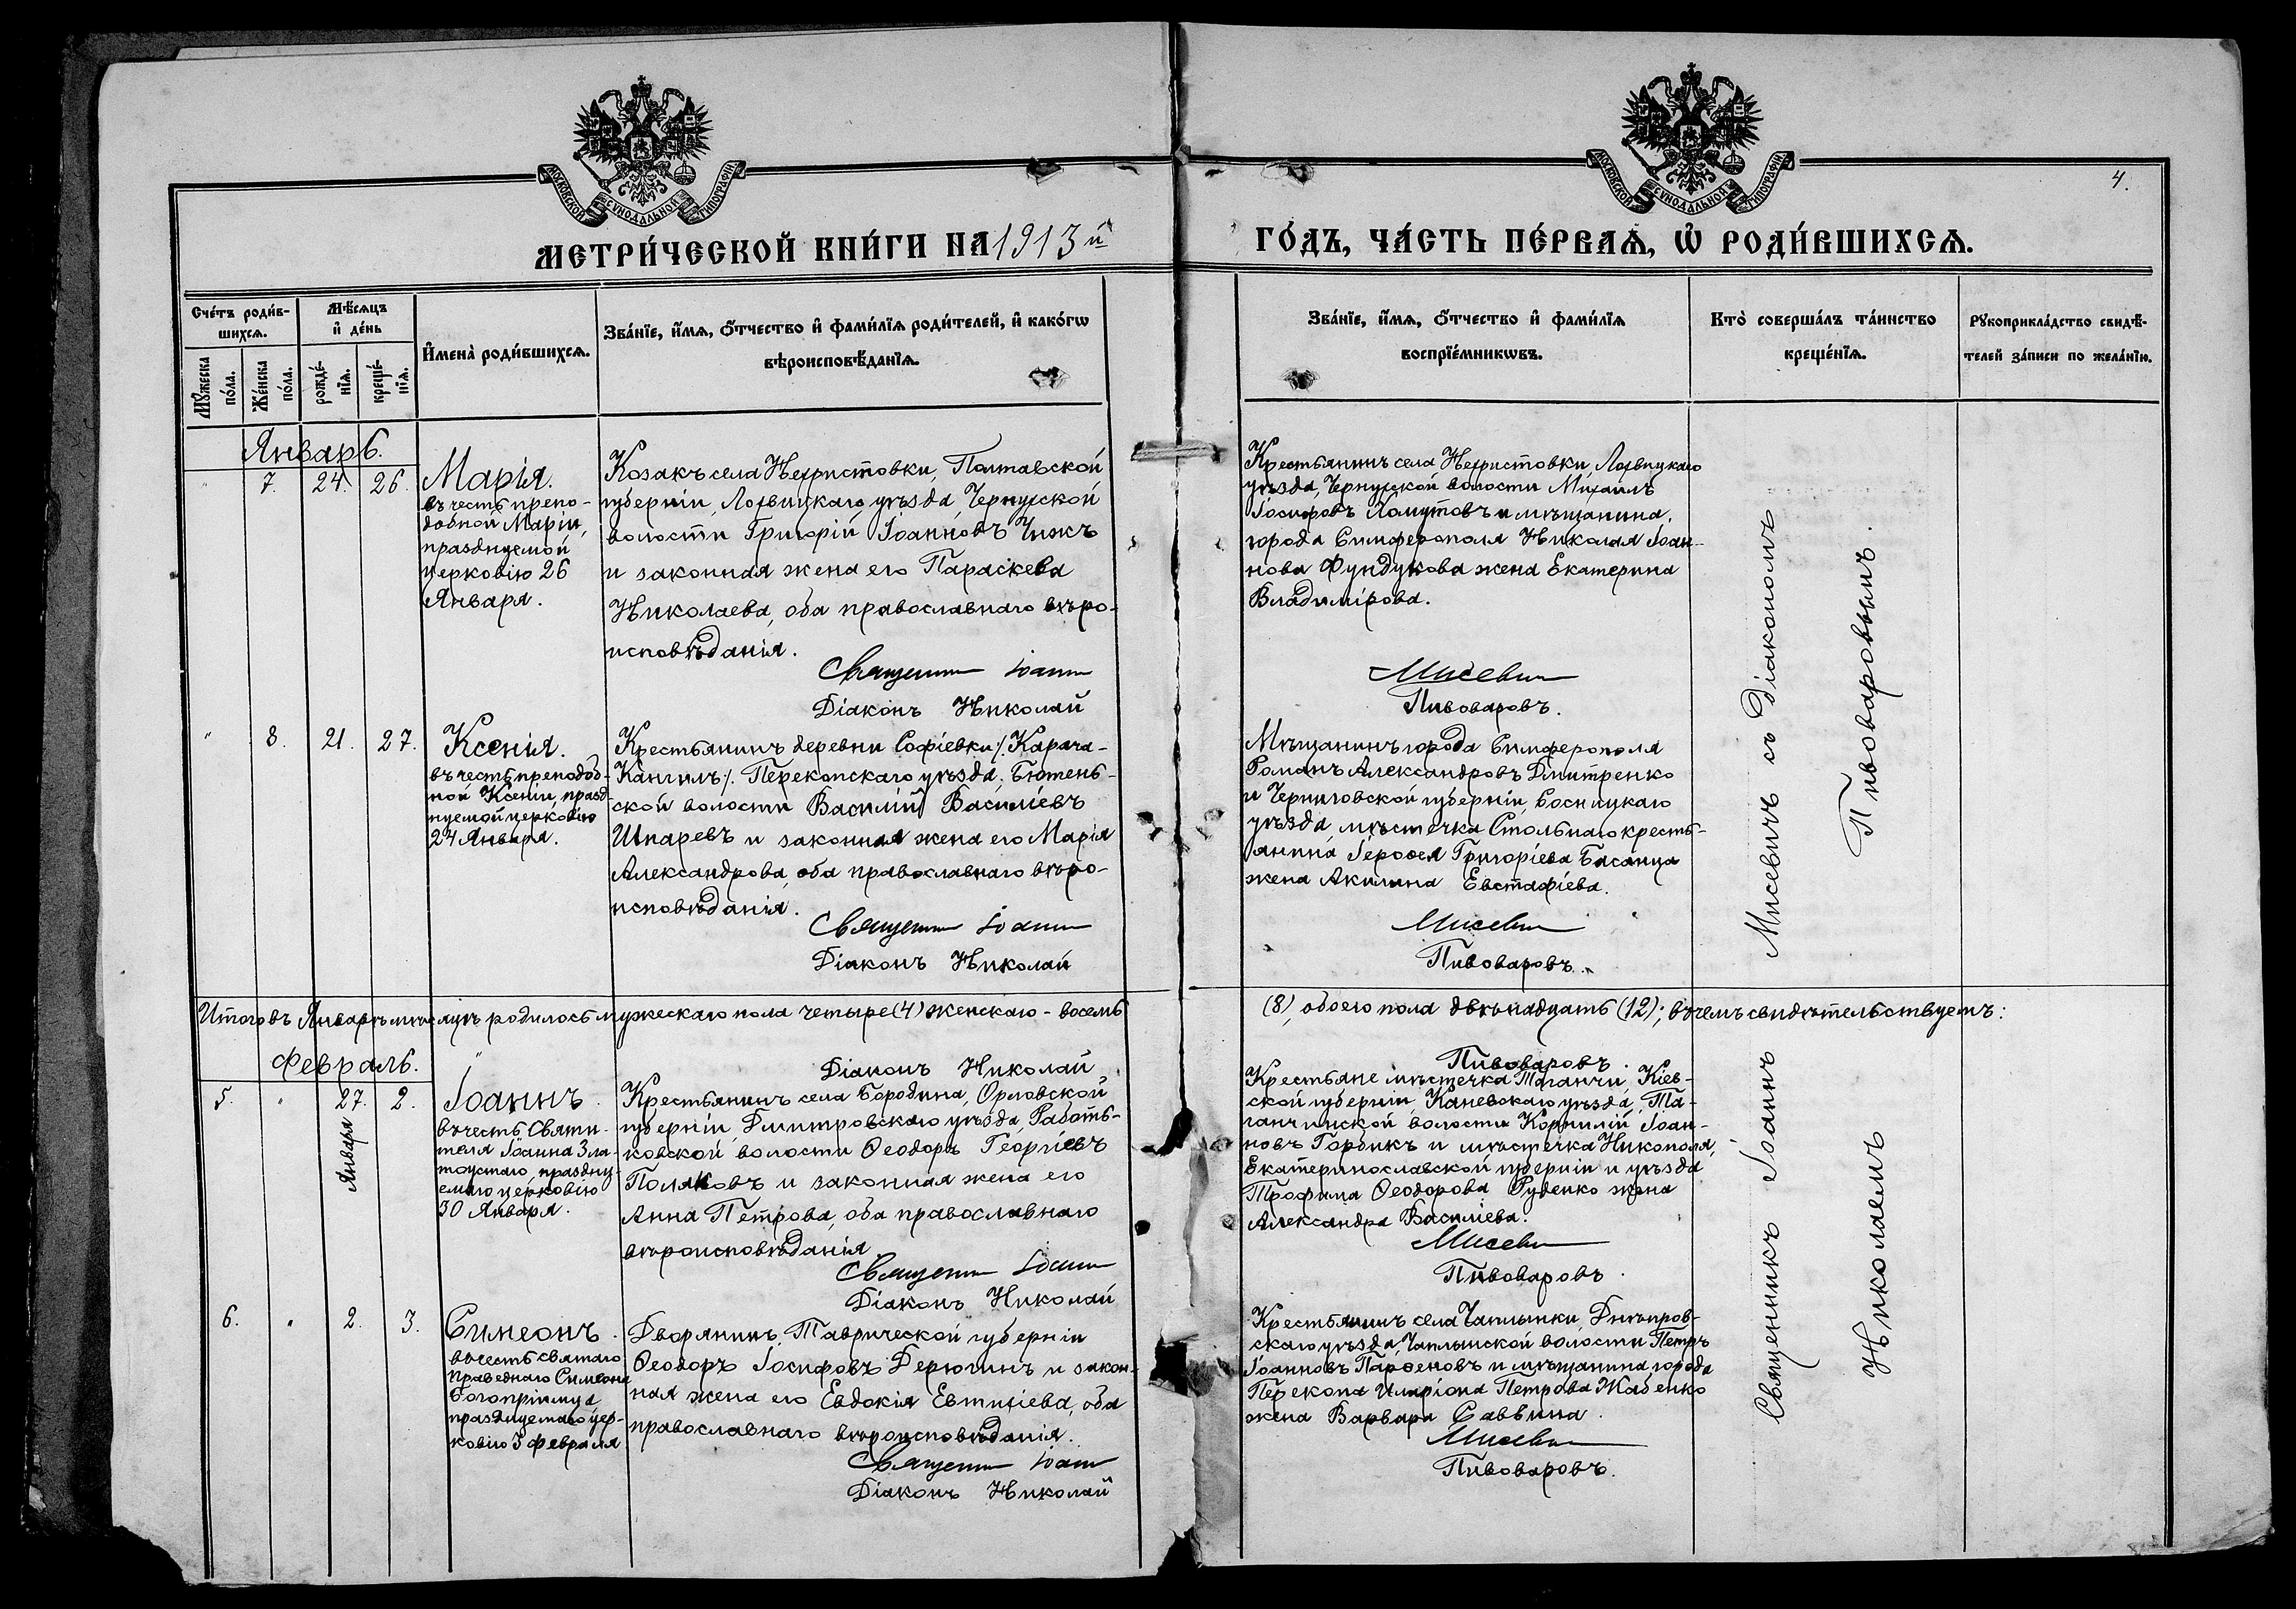 МОСКОВСКОЙ СѴНОДАЛЬНОЙ ТИПОГРАФІИ
МОСКОВСКОЙ СѴНОДАЛЬНОЙ ТИПОГРАФІИ
4.
МЕТРИ́ЧЕСКОЙ КНИ́ГИ НА 1913 й
ГО́ДЪ, ЧА́СТЬ ПЕ́РВАѦ, Ѡ҆ РОДИ́ВШИХСѦ.
Сче́тъ роди́в-
шихсѧ.
Мꙋ́жеска по́ла.
Же́нска по́ла.
Мѣ́сѧцъ
и҆ де́нь
рожде́-
нїѧ.
креще́-
нїѧ.
И҆мена̀ роди́вшихсѧ.
Зва́нїе, и҆́мѧ, ѻ҆́тчество и҆ фами́лїѧ роди́телей, и҆ како́гѡ
вѣроисповѣ́данїѧ.
Зва́нїе, и҆́мѧ, ѻ҆́тчество и҆ фами́лїѧ
воспрїе́мникѡвъ.
Кто̀ соверша́лъ та́инство
креще́нїѧ.
Рꙋкоприкла́дство свидѣ́-
телей за́писи по жела́нїю.
Январь.
" 7. 24. 26.
Марія.
въ честь препо-
добной Маріи,
празднуемой
церковію 26
Января.
Козакъ села Нехристовки, Полтавской
губерніи, Лохвицкаго уѣзда, Чернухской
волости Григорій Іоанновъ Чижъ
и законная жена его Параскева
Николаева, оба православнаго вѣро-
исповѣданія.
Священник Іоанн
Діаконъ Николай
Крестьянинъ села Нехристовки, Лохвицкаго
уѣзда, Чернухской волости Михаилъ
Іосифовъ Хомутовъ и мѣщанина
города Симферополя Николая Іоан-
нова Фундукова жена Екатерина
Владимірова.
Мисевич
Пивоваровъ.
" 8. 21. 27.
Ксенія.
въ честь преподоб-
ной Ксеніи, празд-
нуемой церковію
24 Января.
Крестьянинъ деревни Софіевки /. Карача-
Кангилъ /. Перекопскаго уѣзда, Бютень-
ской волости Василій Василіевъ
Шпаревъ и законная жена его Марія
Александрова, оба православнаго вѣро-
исповѣданія.
Священник Іоанн
Діаконъ Николай
Мѣщанинъ города Симферополя
Романъ Александровъ Дмитренко
и Черниговской губерніи, Сосницкаго
уѣзда мѣстечка Стольнаго кресть-
янина Іерофея Григоріева Басанца
жена Акилина Евстафіева.
Мисевич
Пивоваровъ.
Итого въ Январѣ мѣсяцѣ родилось мужескаго пола четыре (4) женскаго - восемь
(8), обоего пола двѣнадцать (12); въ чемъ свидѣтельствуемъ:
Діаконъ Николай
Пивоваровъ.
Февраль.
5. " 27. 2.
Января
Іоаннъ.
въ честь Святи-
теля Іоанна Зла-
тоустаго, праздну-
емаго церковію
30 Января.
Крестьянинъ села Бородина, Орловской
губерніи, Дмитровскаго уѣзда, Работь-
ковской волости Ѳеодоръ Георгіевъ
Поляковъ и законная жена его
Анна Петрова, оба православнаго
вѣроисповѣданія
Священник Іоанн
Діаконъ Николай
Крестьяне мѣстечка Таганчи, Кіев-
ской губерніи, Каневскаго уѣзда, Та-
ганчинской волости Корнилій Іоан-
новъ Горбикъ и мѣстечка Никополя,
Екатеринославской губерніи и уѣзда
Трофима Ѳеодорова Руденко жена
Александра Василіева.
Мисевич
Пивоваровъ.
6. " 2. 3.
Симеонъ.
въ честь святаго
праведнаго Симеона
Богопріимца
празднуемаго цер-
ковію 3 февраля
Дворянинъ, Таврической губерніи
Ѳеодоръ Іосифовъ Дерюгинъ и закон-
ная жена его Евдокія Евтихіева, оба
православнаго вѣроисповѣданія.
Священник Іоанн
Діаконъ Николай
Крестьянинъ села Чаплынки, Днѣпров-
скаго уѣзда, Чаплынской волости Петръ
Іоанновъ Парѳеновъ и мѣщанина города
Перекопа Иларіона Петрова Жабенко
жена Варвара Саввина.
Мисевич
Пивоваровъ.
Священникъ Іоаннъ Мисевичъ съ Діакономъ
Николаемъ Пивоваровымъ.